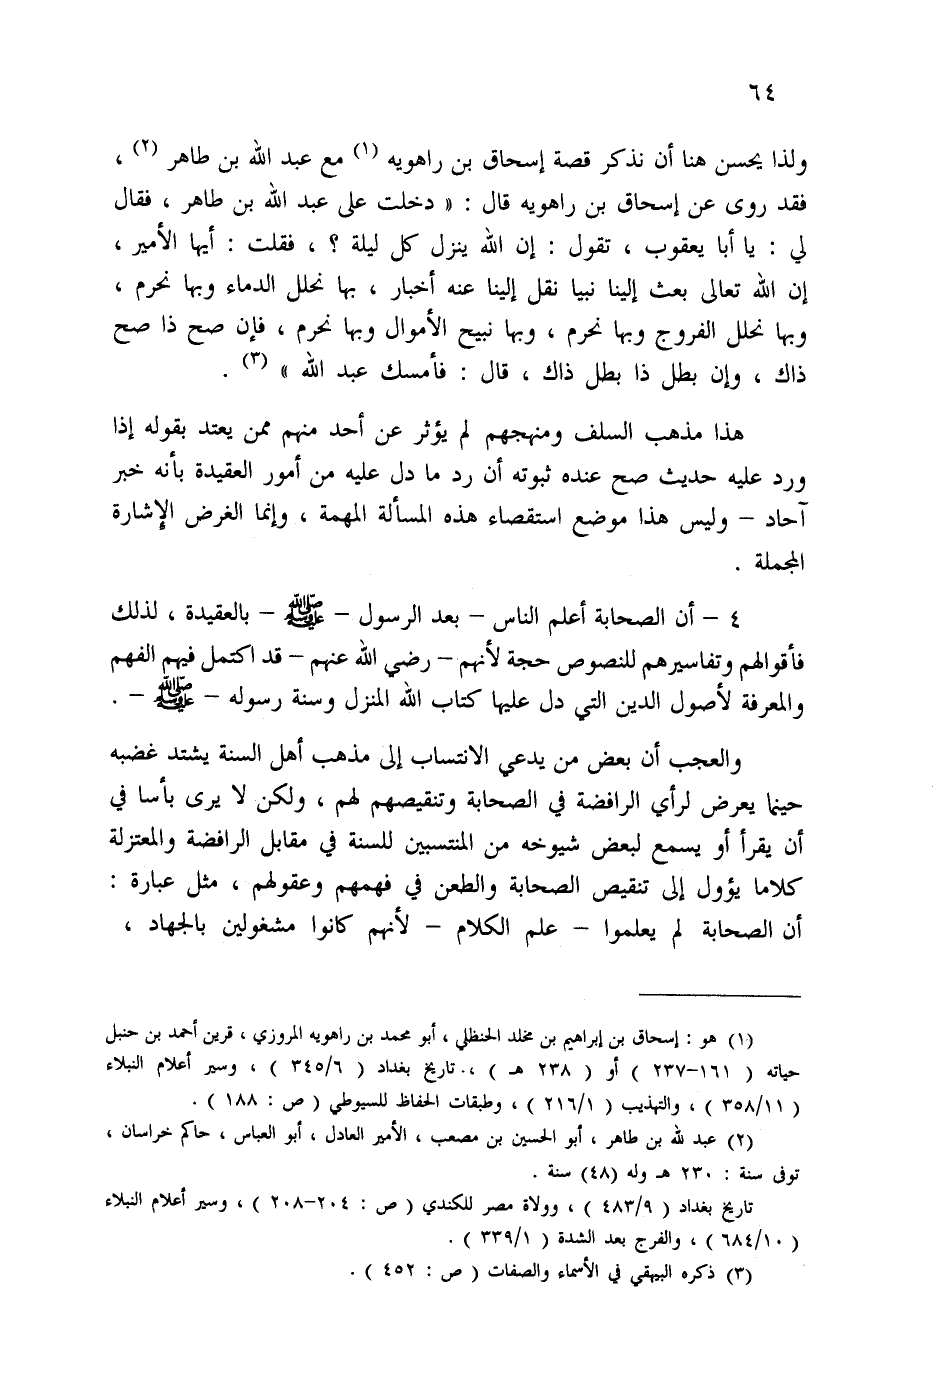 ٦٤
ولذا يحسن هنا أن نذكر قصة إسحاق بن راهويه (١) مع عبد الله بن طاهر (٢) ،
فقد روى عن إسحاق بن راهويه قال : « دخلت على عبد الله بن طاهر ، فقال
لي : يا أبا يعقوب ، تقول : إن الله ينزل كل ليلة ؟ ، فقلت : أيها الأمير ،
إن الله تعالى بعث إلينا نبيا نقل إلينا عنه أخبار ، بها نحلل الدماء وبها نحرم ،
وبها نحلل الفروج وبها نحرم ، وبها نبيح الأموال وبها نحرم ، فإن صح ذا صح
ذاك ، وإن بطل ذا بطل ذاك ، قال : فأمسك عبد الله » (٣) .
هذا مذهب السلف ومنهجهم لم يؤثر عن أحد منهم ممن يعتد بقوله إذا
ورد عليه حديث صح عنده ثبوته أن رد ما دل عليه من أمور العقيدة بأنه خبر
آحاد – وليس هذا موضع استقصاء هذه المسألة المهمة ، وإنما الغرض الإشارة
المجملة .
٤ – أن الصحابة أعلم الناس – بعد الرسول – ﷺ – بالعقيدة ، لذلك
فأقوالهم وتفاسيرهم للنصوص حجة لأنهم – رضي الله عنهم – قد اكتمل فيهم الفهم
والمعرفة لأصول الدين التي دل عليها كتاب الله المنزل وسنة رسوله – ﷺ – .
والعجب أن بعض من يدعي الانتساب إلى مذهب أهل السنة يشتد غضبه
حينما يعرض لرأي الرافضة في الصحابة وتنقيصهم لهم ، ولكن لا يرى بأسا في
أن يقرأ أو يسمع لبعض شيوخه من المنتسبين للسنة في مقابل الرافضة والمعتزلة
كلاما يؤول إلى تنقيص الصحابة والطعن في فهمهم وعقولهم ، مثل عبارة :
أن الصحابة لم يعلموا – علم الكلام – لأنهم كانوا مشغولين بالجهاد ،
(١) هو : إسحاق بن إبراهيم بن مخلد الحنظلي ، أبو محمد بن راهويه المروزي ، قرين أحمد بن حنبل
حياته ( ١٦١–٢٣٧ ) أو ( ٢٣٨ هـ ) ،. تاريخ بغداد ( ٣٤٥/٦ ) ، وسير أعلام النبلاء
( ٣٥٨/١١ ) ، والتهذيب ( ٢١٦/١ ) ، وطبقات الحفاظ للسيوطي ( ص : ١٨٨ ) .
(٢) عبد لله بن طاهر ، أبو الحسين بن مصعب ، الأمير العادل ، أبو العباس ، حاكم خراسان ،
توفى سنة : ٢٣٠ هـ وله (٤٨) سنة .
تاريخ بغداد ( ٤٨٣/٩ ) ، وولاة مصر للكندي ( ص : ٢٠٤–٢٠٨ ) ، وسير أعلام النبلاء
( ٦٨٤/١٠ ) ، والفرج بعد الشدة ( ٣٣٩/١ ) .
(٣) ذكره البيهقي في الأسماء والصفات ( ص : ٤٥٢ ) .